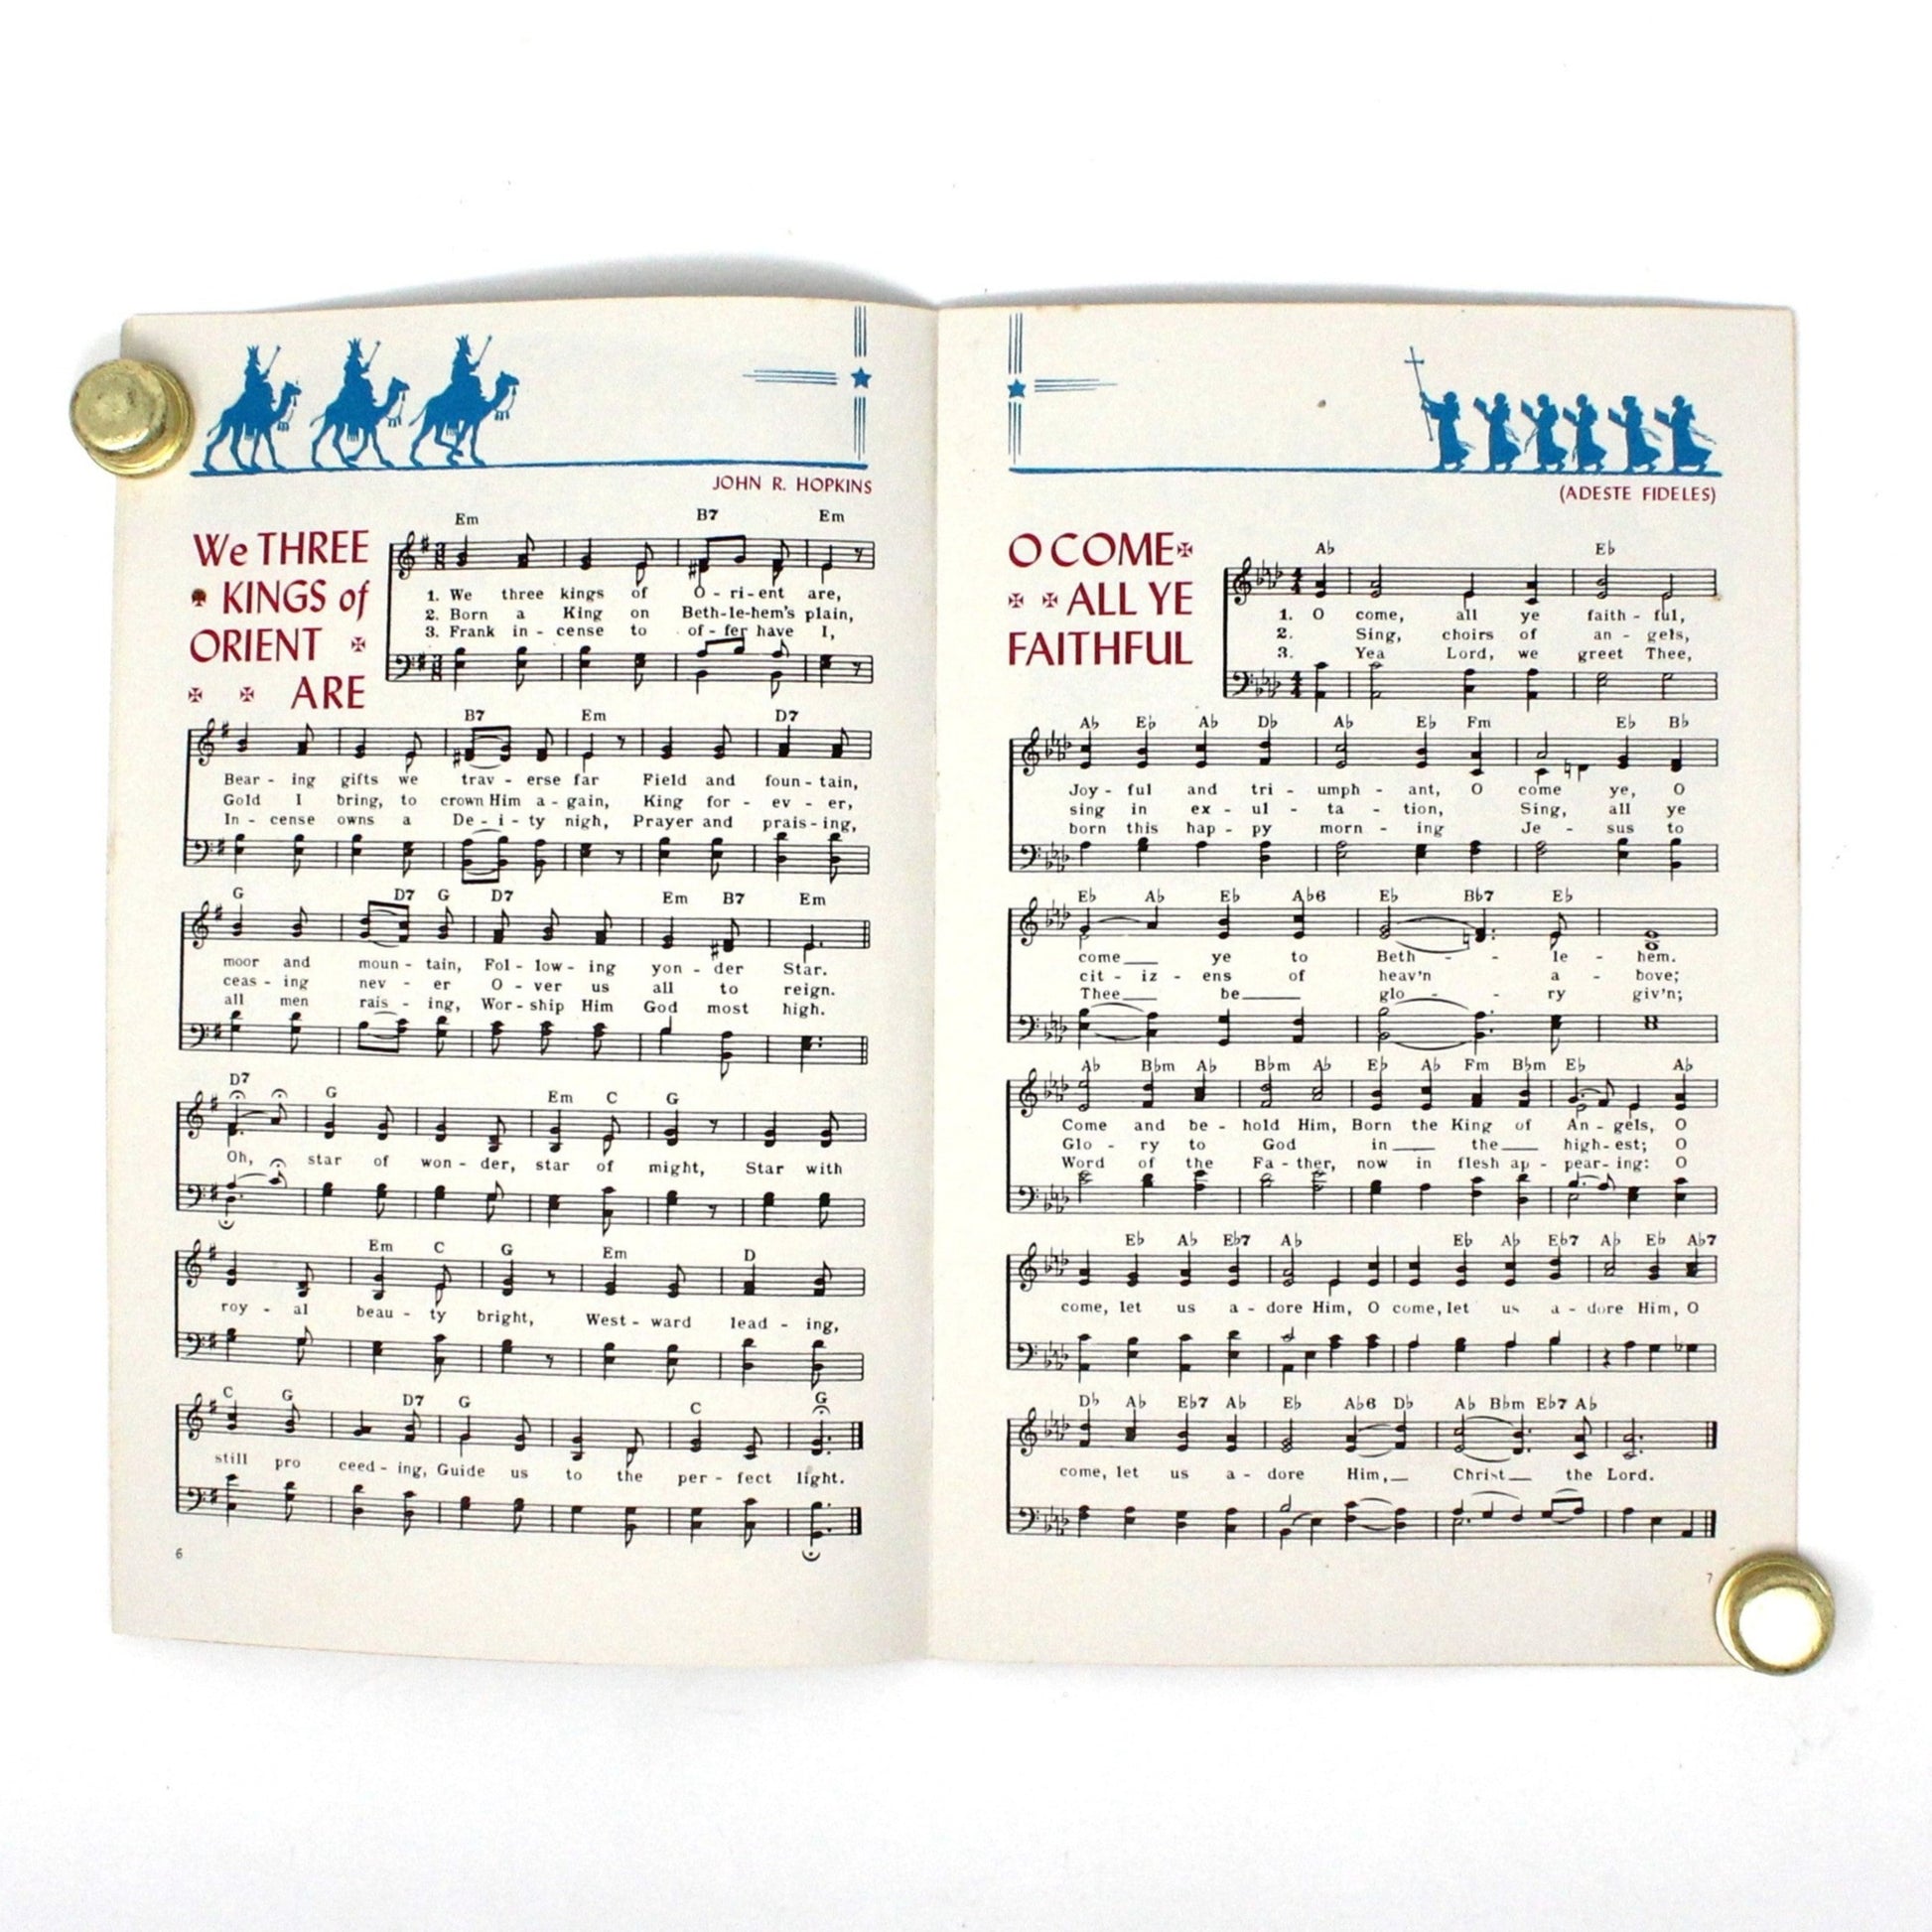 JOHN R. HOPKINS
We THREE
KINGS of
ORIENT
ARE
Em B7 Em
1. We three kings of O - ri - ent are,
2. Born a King on Beth - le - hem's plain,
3. Frank in - cense to of - fer have I,
B7 Em D7
Bear - ing gifts we trav - erse far Field and foun - tain,
Gold I bring, to crown Him a - gain, King for - ev - er,
In - cense owns a De - i - ty nigh, Prayer and prais - ing,
G D7 G D7 Em B7 Em
moor and moun - tain, Fol - low - ing yon - der Star.
ceas - ing nev - er O - ver us all to reign.
all men rais - ing, Wor - ship Him God most high.
D7 G Em C G
Oh, star of won - der, star of might, Star with
Em C G Em D
roy - al beau - ty bright, West - ward lead - ing,
C G D7 G C G
still pro ceed - ing, Guide us to the per - fect light.
6
(ADESTE FIDELES)
O COME
ALL YE
FAITHFUL
A♭ E♭
1. O come, all ye faith - ful,
2. Sing, choirs of an - gels,
3. Yea Lord, we greet Thee,
A♭ E♭ A♭ D♭ A♭ E♭ Fm E♭ B♭
Joy - ful and tri - umph - ant, O come ye, O
sing in ex - ul - ta - tion, Sing, all ye
born this hap - py morn - ing Je - sus to
E♭ A♭ E♭ A♭6 E♭ B♭7 E♭
come ye to Beth - - le - hem.
cit - iz - ens of heav'n a - bove;
Thee be glo - - ry giv'n;
A♭ B♭m A♭ B♭m A♭ E♭ A♭ Fm B♭m E♭ A♭
Come and be - hold Him, Born the King of An - gels, O
Glo - ry to God in the high - est; O
Word of the Fa - ther, now in flesh ap - pear - ing: O
E♭ A♭ E♭7 A♭ E♭ A♭ E♭7 A♭ E♭ A♭7
come, let us a - dore Him, O come, let us a - dore Him, O
D♭ A♭ E♭7 A♭ E♭ A♭6 D♭ A♭ B♭m E♭7 A♭
come, let us a - dore Him, Christ the Lord.
7